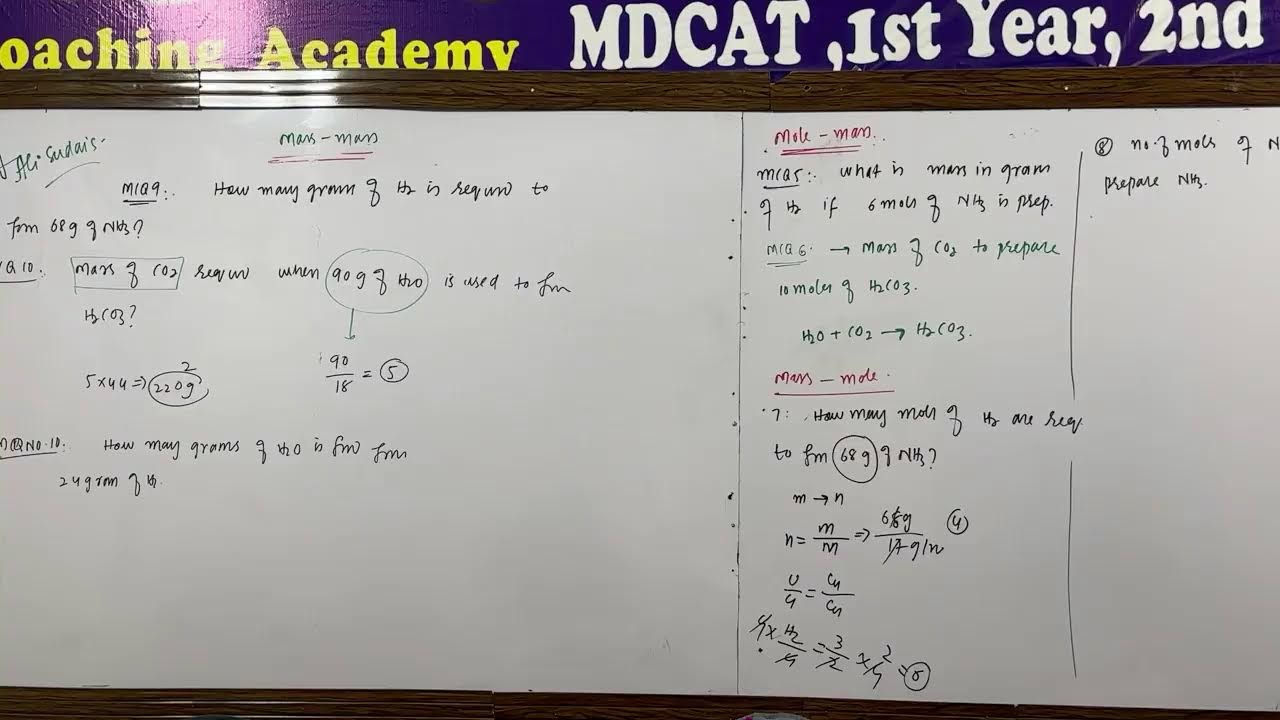 oaching Academy MDCAT ,1st Year, 2nd
Ali Sudais.
Mass - mass
MCQ 9:. How many gram of H2 is requir to
form 68 g of NH3?
Q 10:. Mass of CO2 requir when 90 g of H2O is used to fm
H2CO3?
90/18 = 5
5 x 44 => 220g
2
MCQ NO.10:. How may grams of H2O is fm from
24 gram of H2
Mole - mass.
MCQ 5:. What is mass in gram
of H2 if 6 mols of NH3 is prep.
MCQ 6. → Mass of CO2 to prepare
10 moles of H2CO3.
H2O + CO2 → H2CO3.
Mass - mole.
7: How may mols of H2 are req
to fm 68 g of NH3?
m → n
n = m/M => 68g/17 g/n 4
U/G = Cu/Cu
4 x H2/4 = 3/2 x 4 = 6
2
⑧ no. of mols of N
prepare NH3.